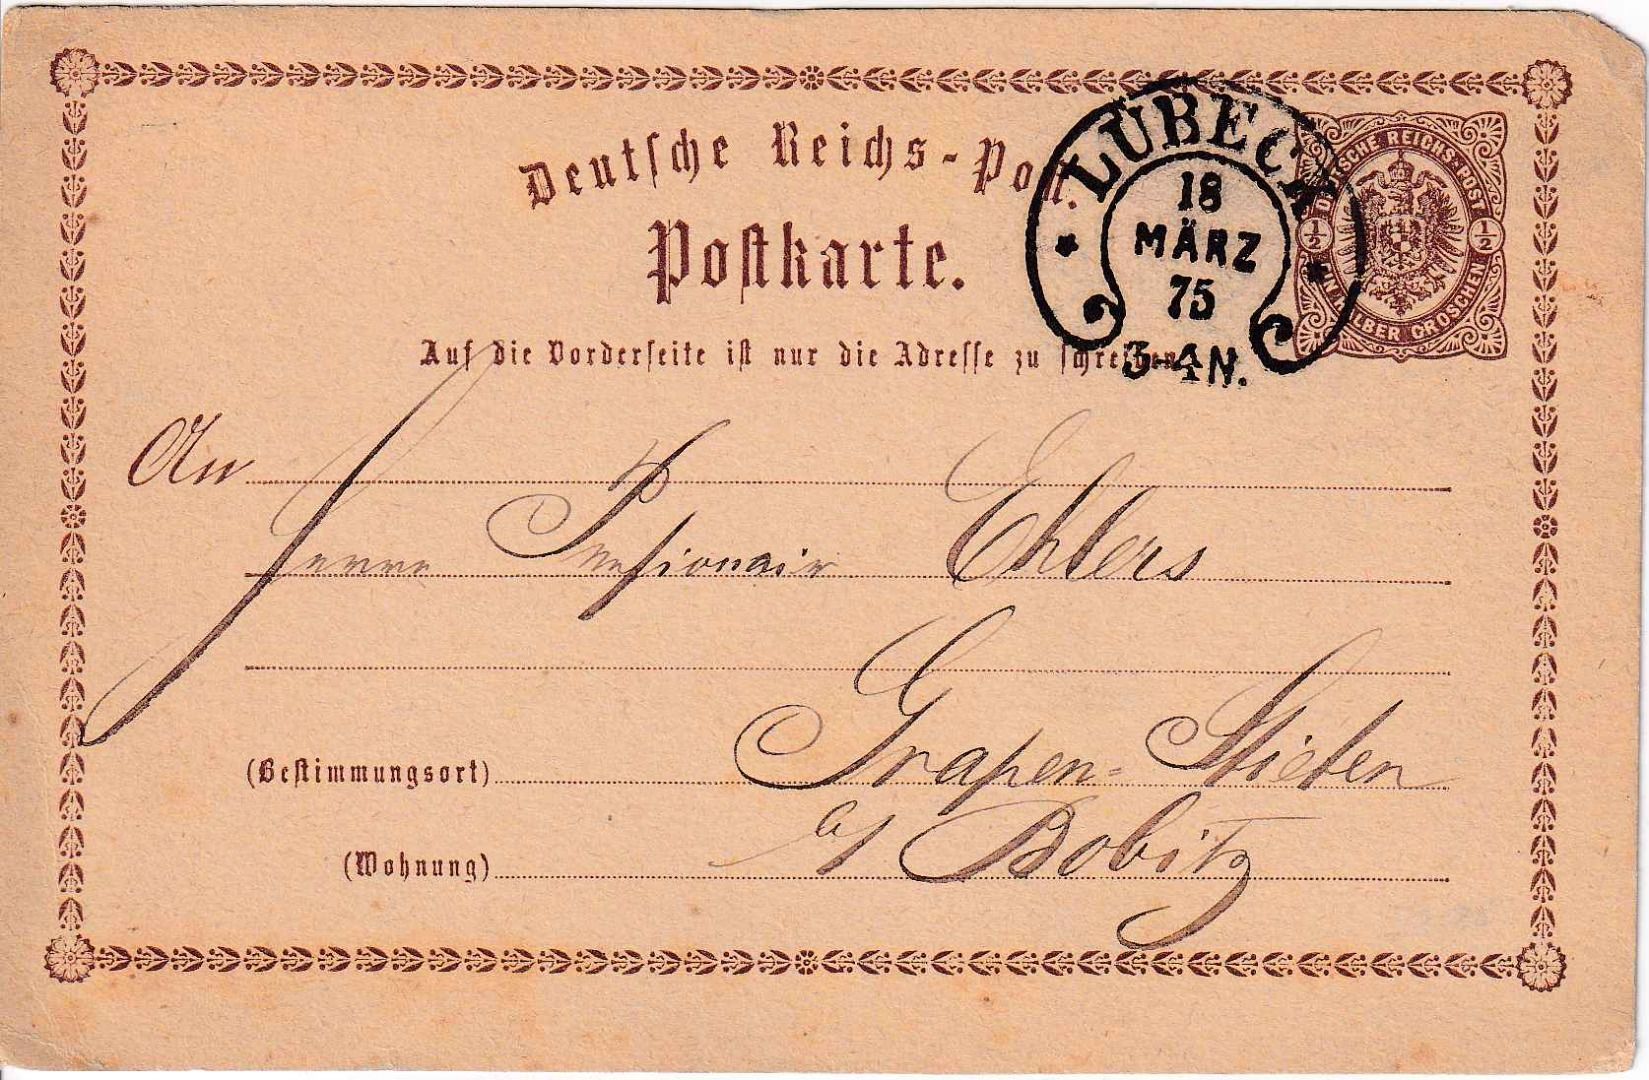 Deutsche Reichs-Post.
Postkarte.
LÜBECK
18
MÄRZ
75
3-4N.
DEUTSCHE REICHS-POST
1/2 1/2
EIN HALBER GROSCHEN
Auf die Vorderseite ist nur die Adresse zu schreiben.
An
Herrn Pensionair Ehlers
(Bestimmungsort) Grapen-Stieten
(Wohnung) a/ Bobitz